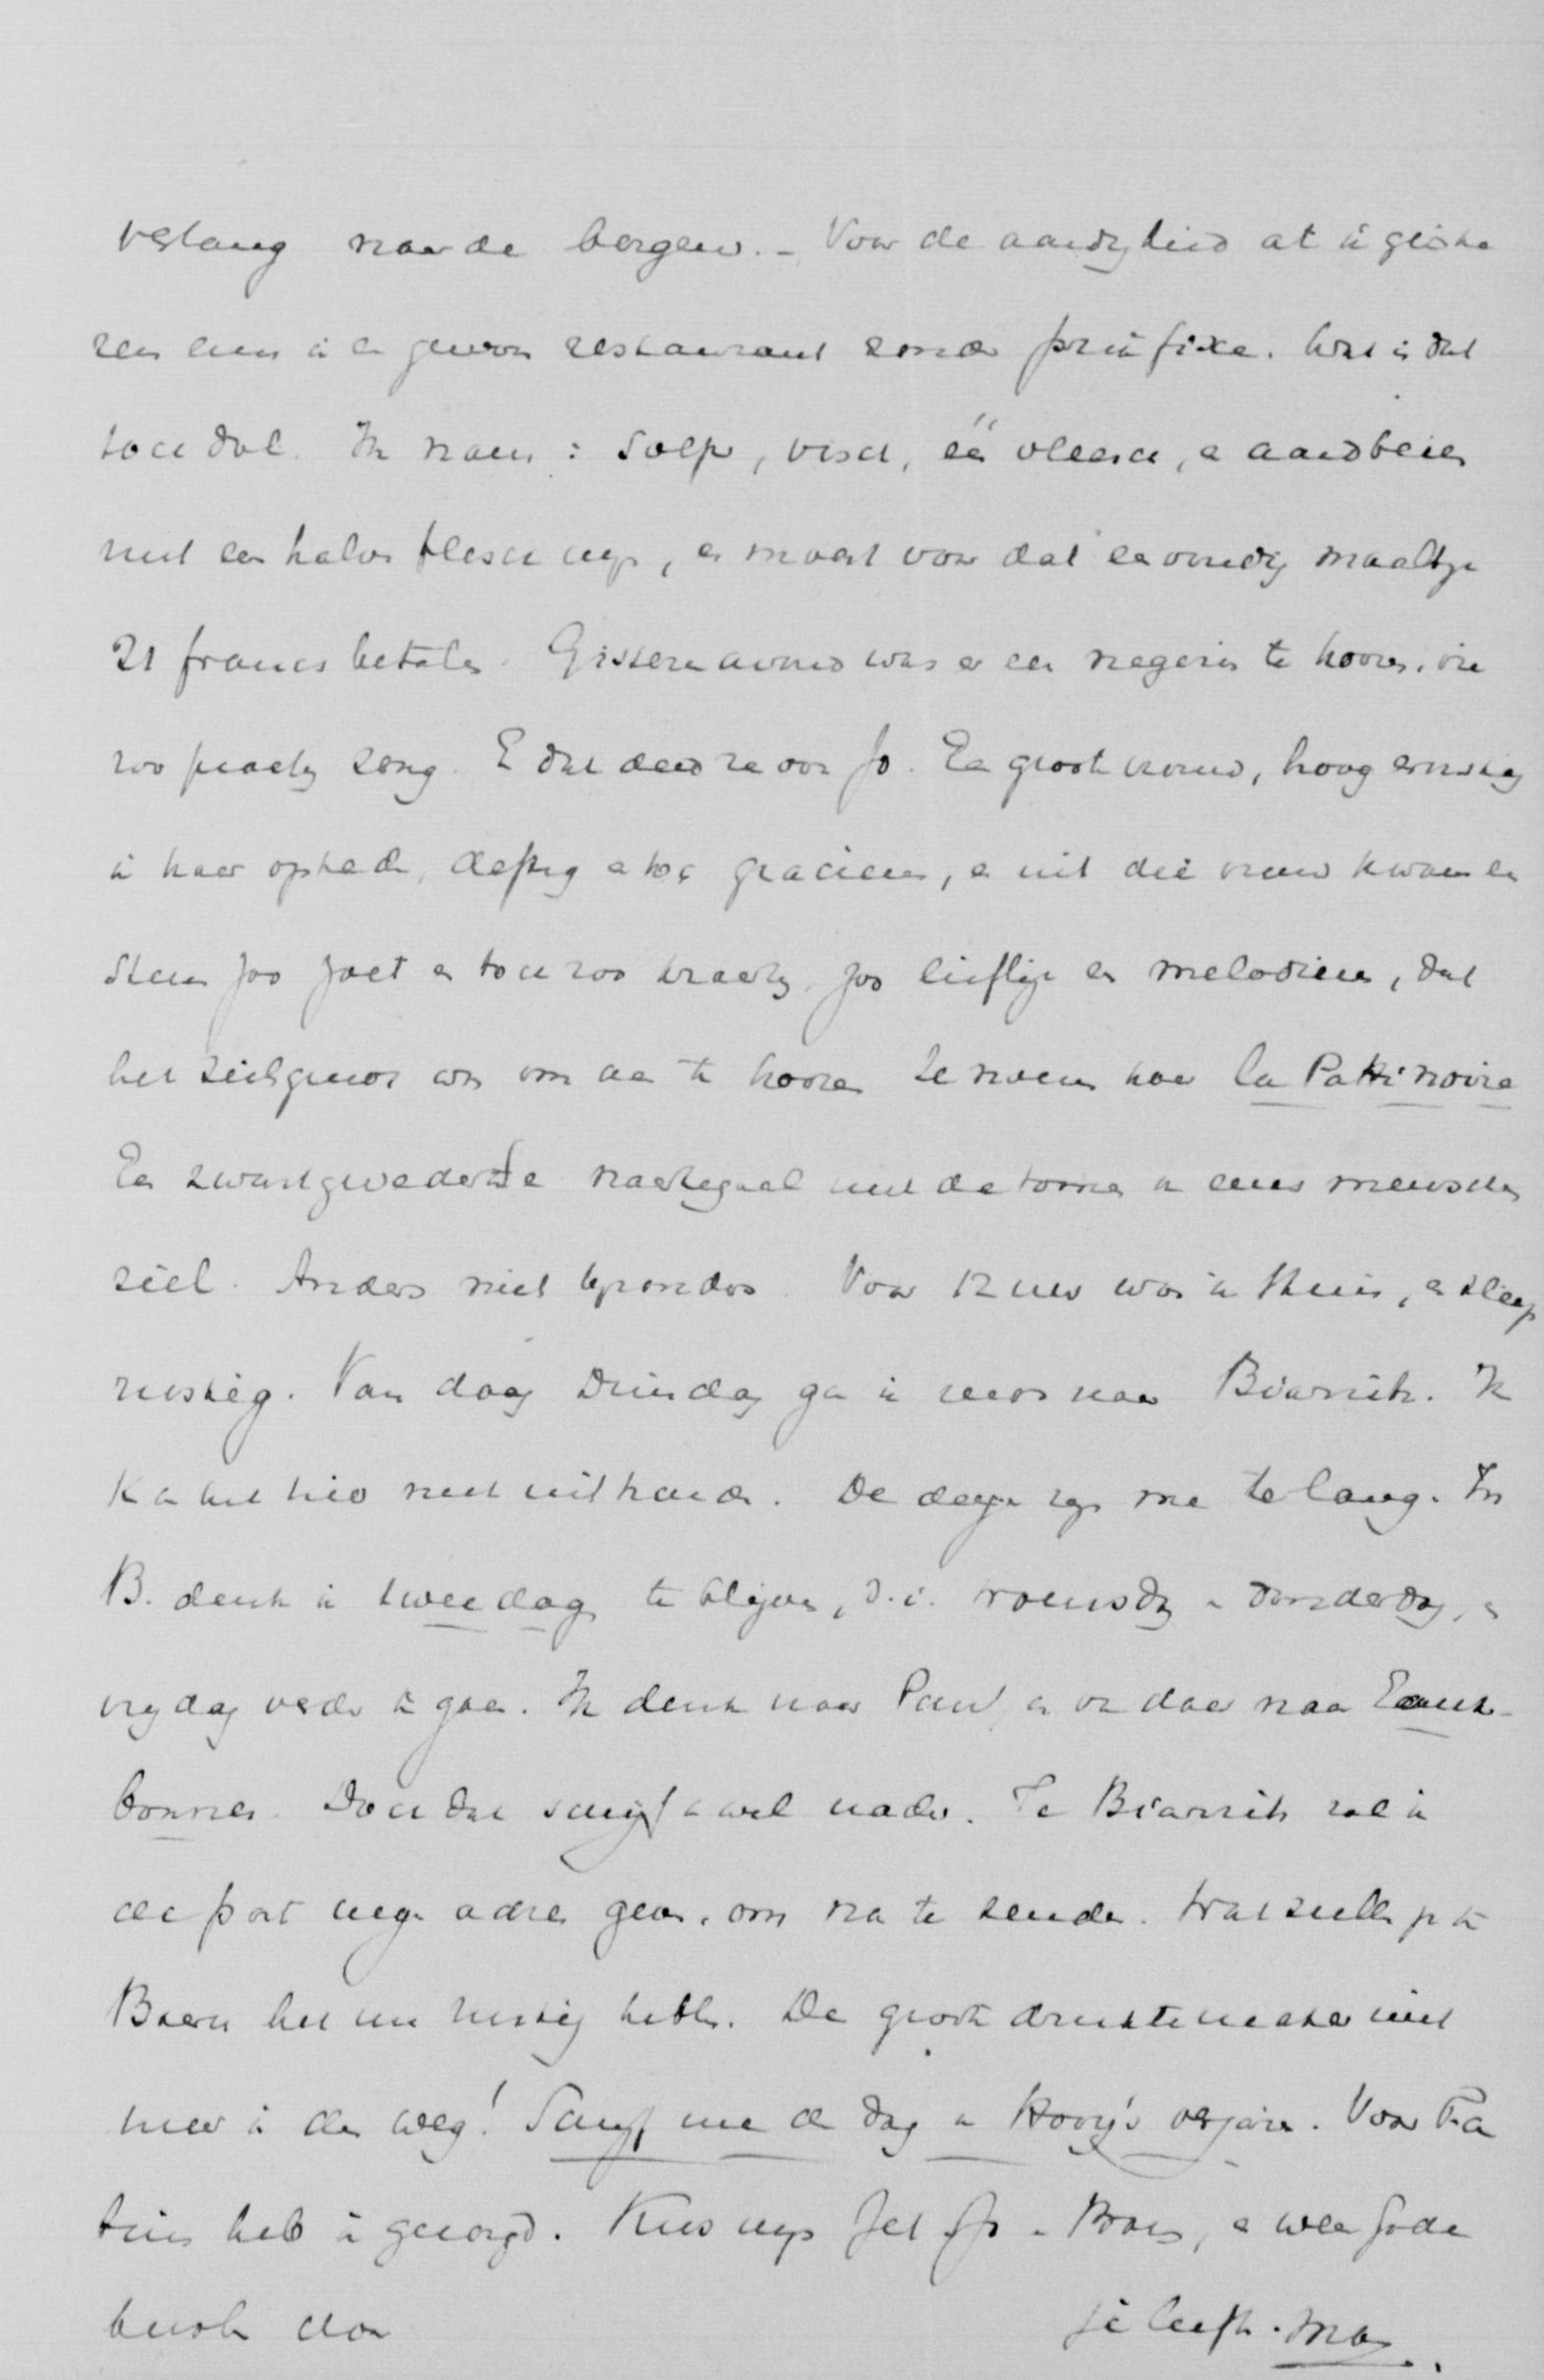 verlang naar de bergen. - Voor de aardigheid at ik gister
een in een gewoon restaurant zonder prix fixe. Wat is dat
toch dol. Ik nam: soep, visch, één vleesch, en aardbeien
met een halve flesch wijn, en moest voor dat eenvoudig maaltje
21 francs betalen. Gisteren avond was er een negerin te hooren, die
zoo prachtig zong. En dat deed ze ook zoo. Een groote vrouw, hoog ernstig
in haar optreden, deftig en toch gracieus, en uit die vrouw kwam een
stem zoo zoet en toch zoo krachtig, zoo lieflijk en melodieus, dat
het zielsgenot was om aan te hooren. Ze noemen haar la Patti noire
Een zwartgevederde nachtegaal met de tonen van eens menschen
ziel. Anders niet bijzonders. Voor 12 uur was ik thuis, en sliep
rustig. Van daag Dinsdag ga ik weer naar Biarritz. Ik
kan het hier niet uithouden. De dagen zijn me te lang. In
B. denk ik twee dagen te blijven, d.i. woensdag en donderdag, en
vrijdag verder te gaan. Ik denk naar Pau, en van daar naar Eaux-
bonnes. Doch dat schrijf ik wel nader. Te Biarritz zal ik
de post mijn adres geven, om na te zenden. Wat zullen jelui te
Baarn het nu rustig hebben. De groote druktemaker niet
meer in den weg! Schrijf me de dag van Hovy's verjaren. Voor
heb ik gezorgd. Kus mijn Jet, Jo en Broer, en wees Gode
bevolen door
je liefh. man